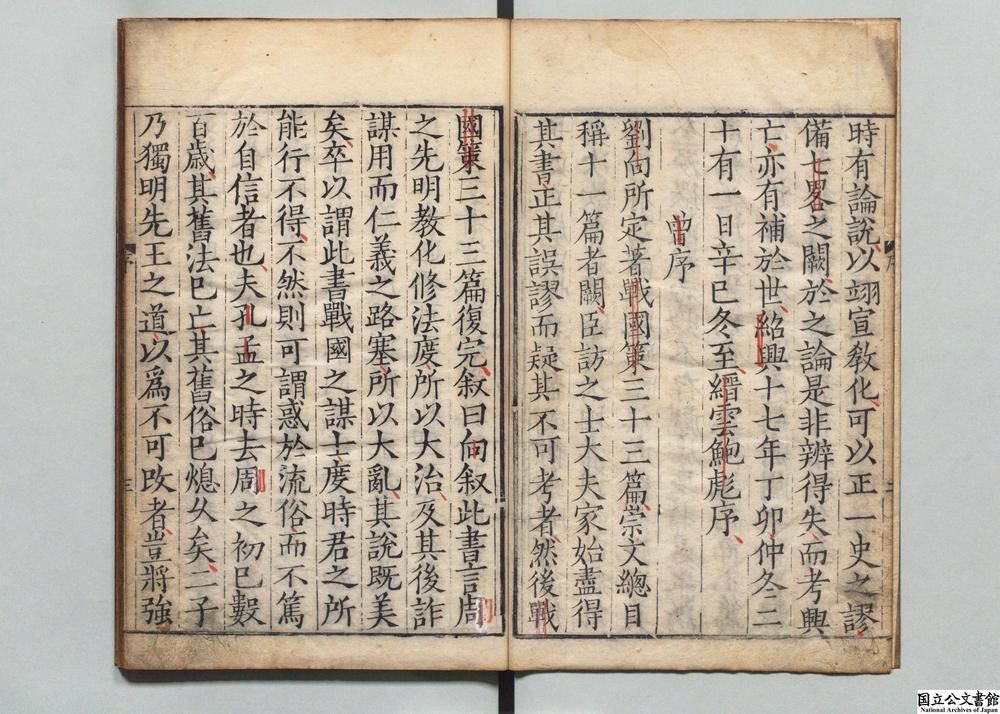 時有論說以翊宣敎化可以正一史之謬
備七畧之闕於之論是非辨得失而考興
亡亦有補於世紹興十七年丁卯仲冬二
十有一日辛巳冬至縉雲鮑彪序
曾序
劉向所定著戰國策三十三篇崇文總目
稱十一篇者闕臣訪之士大夫家始盡得
其書正其誤謬而疑其不可考者然後戰
國策三十三篇復完叙曰向叙此書言周
之先明教化修法度所以大治及其後詐
謀用而仁義之路塞所以大亂其說既美
矣卒以謂此書戰國之謀士度時君之所
能行不得不然則可謂惑於流俗而不篤
於自信者也夫孔孟之時去周之初已數
百歲其舊法已亡其舊俗已熄久矣二子
乃獨明先王之道以爲不可攺者豈將強
序
三
国立公文書館
National Archives of Japan